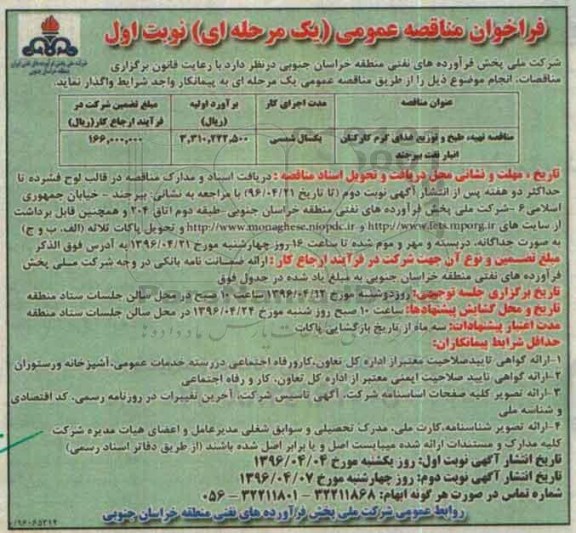 فراخوان مناقصه عمومی (یک مرحله ای) نوبت اول
شرکت ملی پخش فرآورده های نفتی ایران
منطقه خراسان جنوبی
شرکت ملی پخش فرآورده های نفتی منطقه خراسان جنوبی درنظر دارد با رعایت قانون برگزاری
مناقصات، انجام موضوع ذیل را از طریق مناقصه عمومی یک مرحله ای به پیمانکار واجد شرایط واگذار نماید.
عنوان مناقصه مدت اجرای کار برآورد اولیه (ریال) مبلغ تضمین شرکت در فرآیند ارجاع کار(ریال)
مناقصه تهیه، طبخ و توزیع غذای گرم کارکنان انبار نفت بیرجند یکسال شمسی ۳,۳۱۰,۲۲۲,۵۰۰ ۱۶۶,۰۰۰,۰۰۰
تاریخ ، مهلت و نشانی محل دریافت و تحویل اسناد مناقصه : دریافت اسناد و مدارک مناقصه در قالب لوح فشرده تا
حداکثر دو هفته پس از انتشار آگهی نوبت دوم (تا تاریخ ۹۶/۰۴/۲۱) با مراجعه به نشانی: بیرجند - خیابان جمهوری
اسلامی ۶ -شرکت ملی پخش فرآورده های نفتی منطقه خراسان جنوبی -طبقه دوم اتاق ۲۰۴ و همچنین قابل برداشت
از سایت های http://www.iets.mporg.ir و http://www.monaghese.niopdc.ir و تحویل پاکات ثلاثه (الف، ب و ج)
به صورت جداگانه، دربسته و مهر و موم شده تا ساعت ۱۶ روز چهارشنبه مورخ ۱۳۹۶/۰۴/۲۱ به آدرس فوق الذکر
مبلغ تضمین و نوع آن جهت شرکت در فرآیند ارجاع کار : ارائه ضمانت نامه بانکی در وجه شرکت ملی پخش
فرآورده های نفتی منطقه خراسان جنوبی به مبلغ یاد شده در جدول فوق
تاریخ برگزاری جلسه توجیهی: روز دوشنبه مورخ ۱۳۹۶/۰۴/۱۲ ساعت ۱۰ صبح در محل سالن جلسات ستاد منطقه
تاریخ و محل گشایش پیشنهادها: ساعت ۱۰ صبح روز شنبه مورخ ۱۳۹۶/۰۴/۲۴ در محل سالن جلسات ستاد منطقه
مدت اعتبار پیشنهادات: سه ماه از تاریخ بازگشایی پاکات
حداقل شرایط پیمانکاران:
۱-ارائه گواهی تاییدصلاحیت معتبراز اداره کل تعاون،کارورفاه اجتماعی دررسته خدمات عمومی،آشپزخانه ورستوران
۲-ارائه گواهی تایید صلاحیت ایمنی معتبر از اداره کل تعاون، کار و رفاه اجتماعی
۳-ارائه تصویر کلیه صفحات اساسنامه شرکت، آگهی تاسیس شرکت، آخرین تغییرات در روزنامه رسمی، کد اقتصادی
و شناسه ملی
۴-ارائه تصویر شناسنامه،کارت ملی، مدرک تحصیلی و سوابق شغلی مدیرعامل و اعضای هیات مدیره شرکت
کلیه مدارک و مستندات ارائه شده میبایست اصل و یا برابر اصل شده باشند (از طریق دفاتر اسناد رسمی)
تاریخ انتشار آگهی نوبت اول: روز یکشنبه مورخ ۱۳۹۶/۰۴/۰۴
تاریخ انتشار آگهی نوبت دوم: روز چهارشنبه مورخ ۱۳۹۶/۰۴/۰۷
شماره تماس در صورت هر گونه ابهام: ۳۲۲۱۱۸۶۸ - ۳۲۲۱۱۸۰۱ - ۰۵۶
روابط عمومی شرکت ملی پخش فرآورده های نفتی منطقه خراسان جنوبی